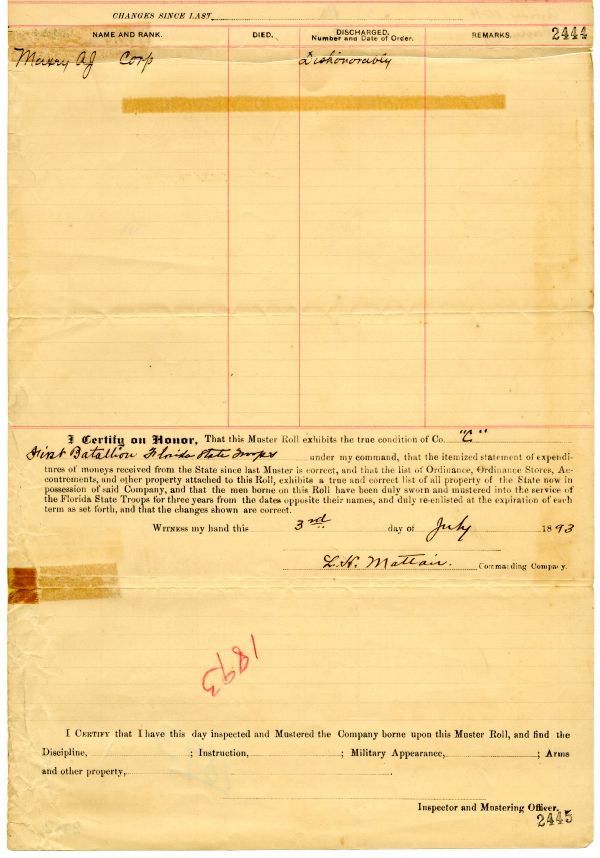 CHANGES SINCE LAST
NAME AND RANK. DIED. DISCHARGED. Number and Date of Order. REMARKS. 2444
AJ Corp Dishonorably
I Certify on Honor, That this Muster Roll exhibits the true condition of Co. "C"
First Batallion Florida State Troops under my command, that the itemized statement of expendi-
tures of moneys received from the State since last Muster is correct, and that the list of Ordinance, Ordinance Stores, Ac-
coutrements, and other property attached to this Roll, exhibits a true and correct list of all property of the State now in
possession of said Company, and that the men borne on this Roll have been duly sworn and mustered into the service of
the Florida State Troops for three years from the dates opposite their names, and duly re-enlisted at the expiration of each
term as set forth, and that the changes shown are correct.
WITNESS my hand this 3rd day of July 1893
L. H. Mattair. Commanding Company.
1893
I CERTIFY that I have this day inspected and Mustered the Company borne upon this Muster Roll, and find the
Discipline, ; Instruction, ; Military Appearance, ; Arms
and other property,
Inspector and Mustering Officer.
2445